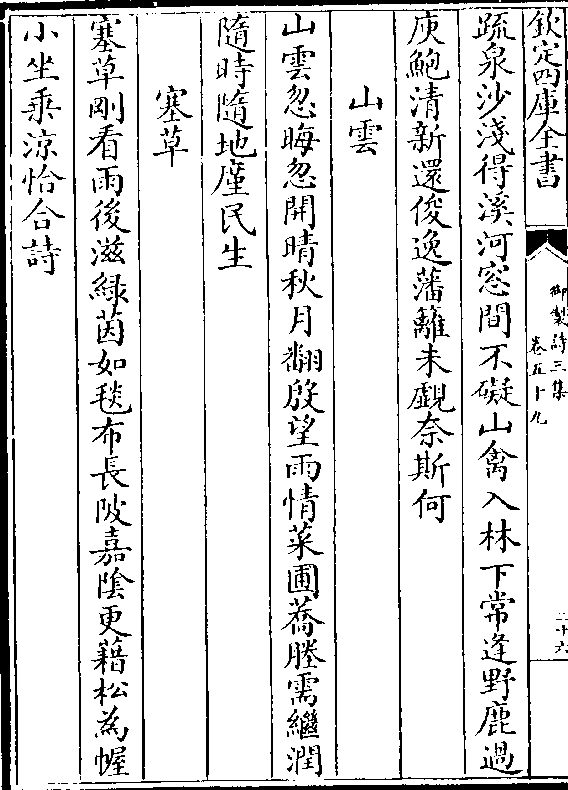 欽定四庫全書
御製詩三集
卷五十九
二十六
疏泉沙淺得溪河窓間不礙山禽入林下常逢野鹿過
庾鮑清新還俊逸藩籬未覷奈斯何
山雲
山雲忽晦忽開晴秋月翻殷望雨情菜圃蕎塍需繼潤
隨時隨地廑民生
塞草
塞草剛看雨後滋綠茵如毯布長陂嘉陰更藉松為幄
小坐乘涼恰合詩